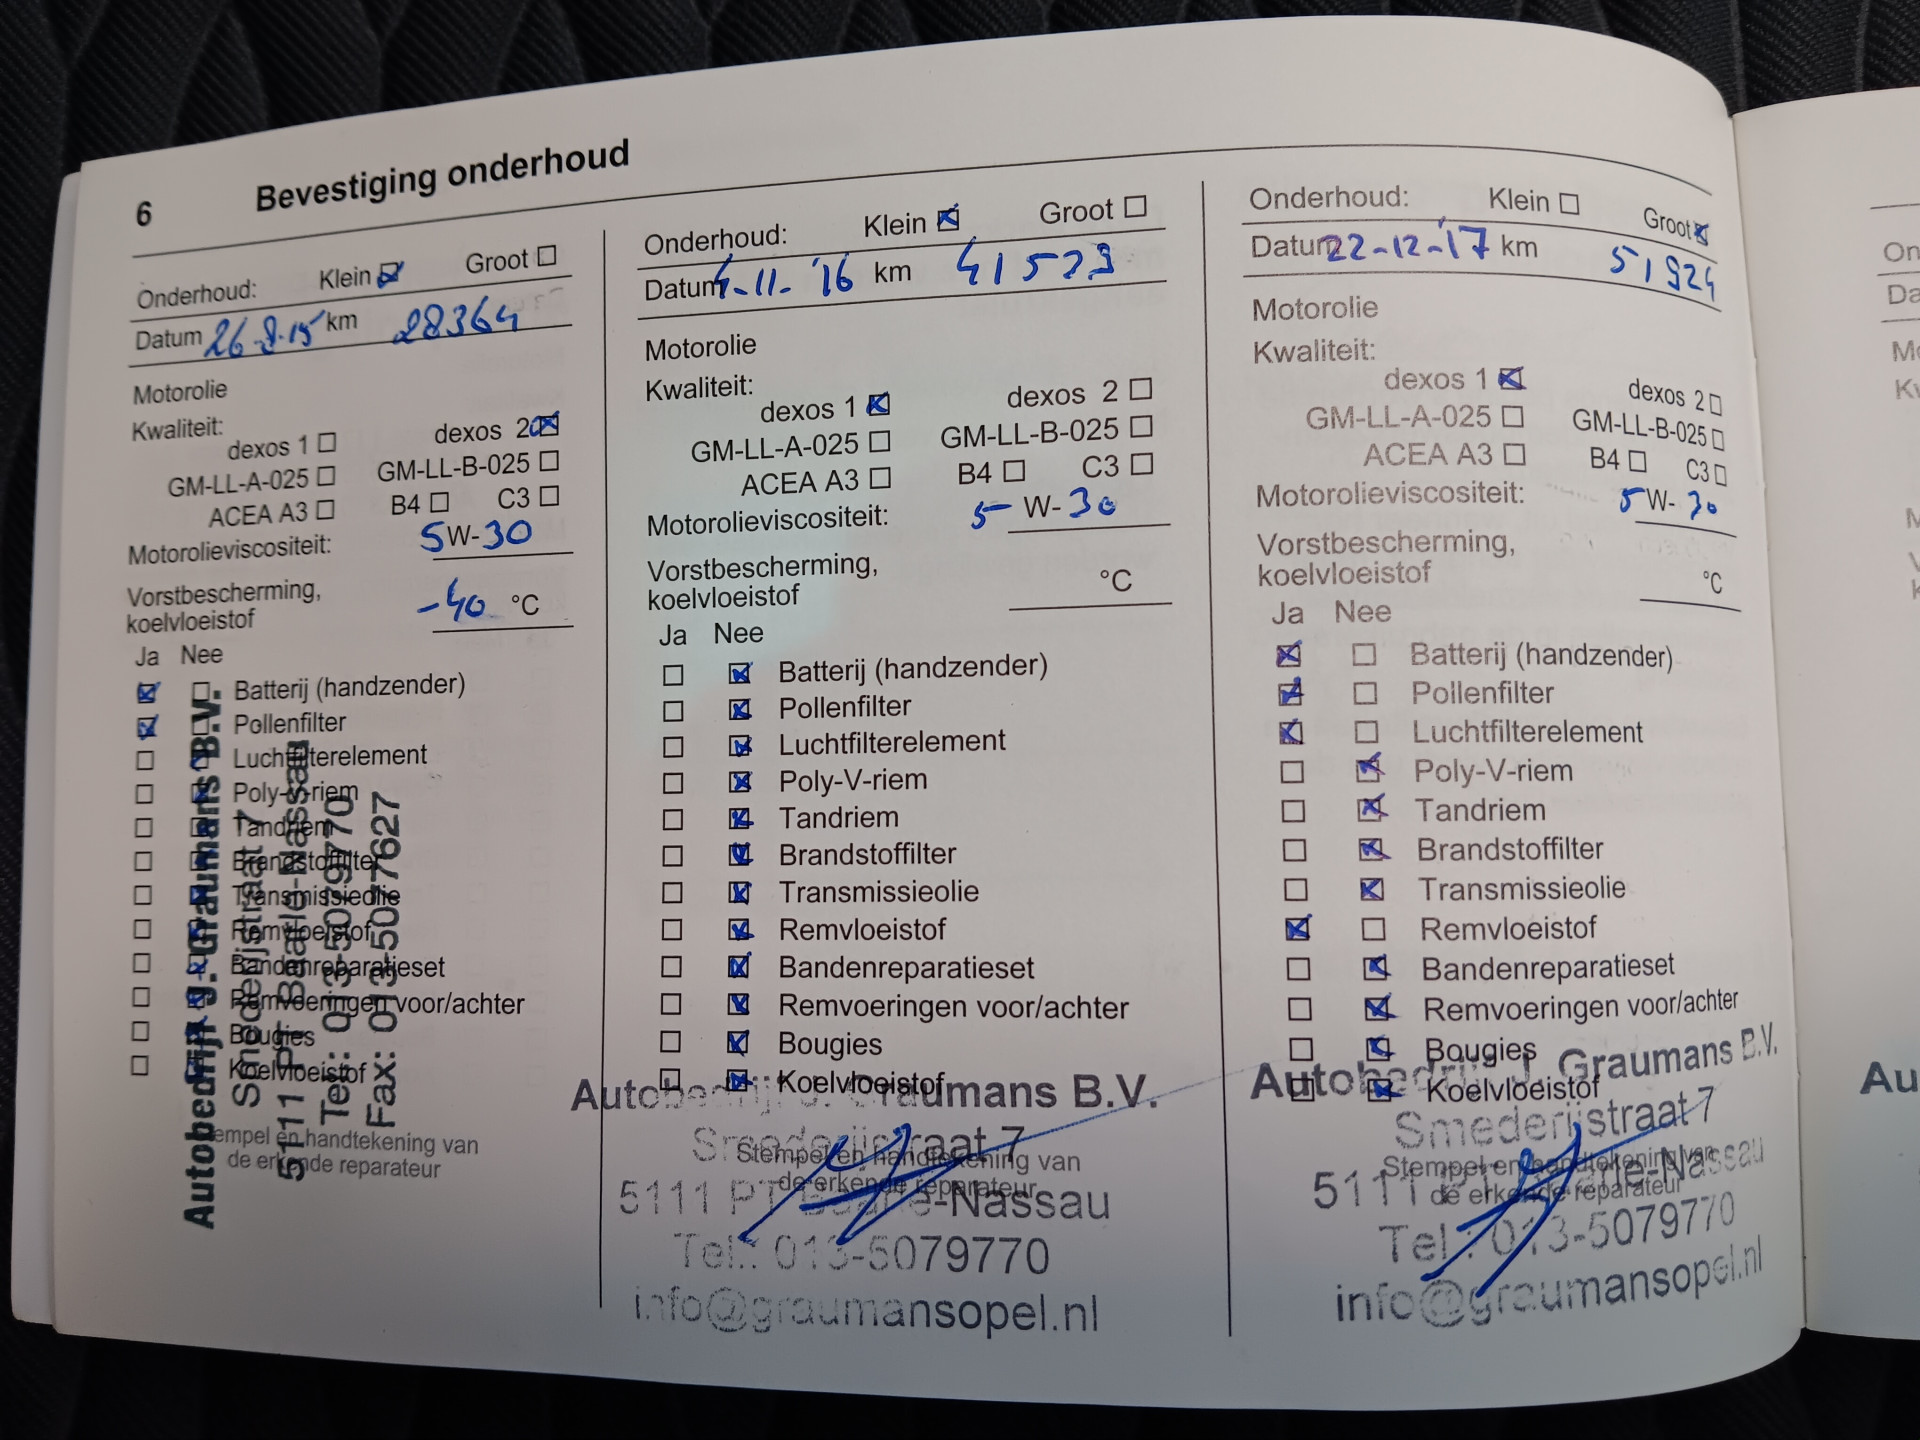 6 Bevestiging onderhoud
Onderhoud: Klein Groot
Datum 26-8-15 km 28364
Motorolie
Kwaliteit:
dexos 1 dexos 2
GM-LL-A-025 GM-LL-B-025
ACEA A3 B4 C3
Motorolieviscositeit: 5W-30
Vorstbescherming,
koelvloeistof -40 °C
Ja Nee
Batterij (handzender)
Pollenfilter
Luchtfilterelement
Poly-V-riem
Tandriem
Brandstoffilter
Transmissieolie
Remvloeistof
Bandenreparatieset
Remvoeringen voor/achter
Bougies
Koelvloeistof
Stempel en handtekening van
de erkende reparateur
Autobedrijf J. Graumans B.V.
Smederijstraat 7
5111 PT Baarle-Nassau
Tel.: 013-5079770
Fax: 013-5077627
Onderhoud: Klein Groot
Datum 4-11-'16 km 41523
Motorolie
Kwaliteit:
dexos 1 dexos 2
GM-LL-A-025 GM-LL-B-025
ACEA A3 B4 C3
Motorolieviscositeit: 5 W-30
Vorstbescherming,
koelvloeistof °C
Ja Nee
Batterij (handzender)
Pollenfilter
Luchtfilterelement
Poly-V-riem
Tandriem
Brandstoffilter
Transmissieolie
Remvloeistof
Bandenreparatieset
Remvoeringen voor/achter
Bougies
Koelvloeistof
Autobedrijf J. Graumans B.V.
Smederijstraat 7
Stempel en handtekening van
de erkende reparateur
5111 PT Baarle-Nassau
Tel.: 013-5079770
info@graumansopel.nl
Onderhoud: Klein Groot
Datum 22-12-'17 km 51924
Motorolie
Kwaliteit:
dexos 1 dexos 2
GM-LL-A-025 GM-LL-B-025
ACEA A3 B4 C3
Motorolieviscositeit: 5 W-30
Vorstbescherming,
koelvloeistof °C
Ja Nee
Batterij (handzender)
Pollenfilter
Luchtfilterelement
Poly-V-riem
Tandriem
Brandstoffilter
Transmissieolie
Remvloeistof
Bandenreparatieset
Remvoeringen voor/achter
Bougies
Koelvloeistof
Autobedrijf J. Graumans B.V.
Smederijstraat 7
Stempel en handtekening van
de erkende reparateur
5111 PT Baarle-Nassau
Tel.: 013-5079770
info@graumansopel.nl